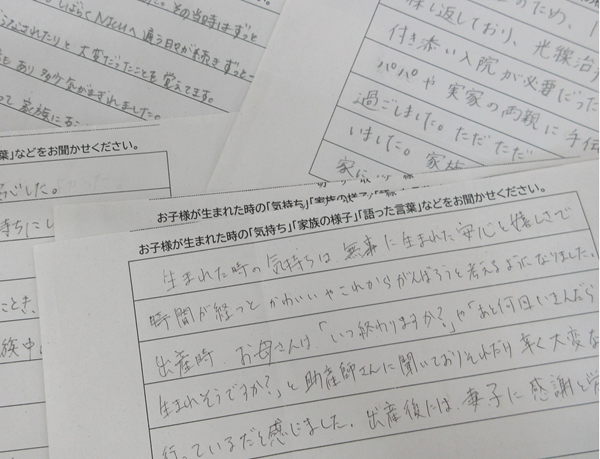 その当時はずっと
しばらくNICUへ通う日々が続きずっと
大変だったことを覚えてます。
家族に
のため、
繰り返しており、光線治
付き添い入院が必要だった
パパや実家の両親に手伝
過ごしました。ただただ
いました。家族
葉」などをお聞かせください。
心した。
持ちに
ことき、
族中
お子様が生まれた時の「気持ち」「家族の様子」「語った言葉」などをお聞かせください。
お子様が生まれた時の「気持ち」「家族の様子」「語った言葉」などをお聞かせください。
生まれた時の気持ちは、無事に生まれた安心と嬉しさで
時間が経つとかわいいやこれからがんばろうと考えるようになりました。
出産時、お母さんは、「いつ終わりますか？」や「あと何回いきんだら
生まれそうですか？」と助産師さんに聞いておりそれだけ辛く大変な
行っているだと感じました。出産後には、妻子に感謝と